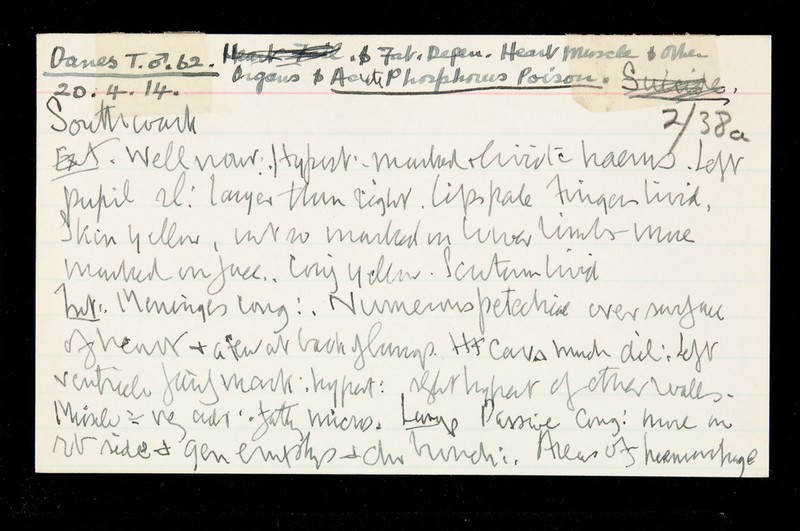 Danes T. ♂. 62. Heart Fail. & Fat. Degen. Heart Muscle & Other
Organs & Acute Phosphorus Poison. Suicide.
20.4.14. 2/38a
Southwark
Ext. Well nour:. Hypost: marked & livid haems. Left
pupil sl: larger than right. Lips pale Fingers livid,
Skin yellow, not so marked on lower limbs more
marked on face. Conj yellow. Scrotum livid
Int. Meninges cong:. Numerous petechiae over surface
of heart & a few at back of lungs. Ht Cavs much dil:. Left
ventricle fairly mark: hypert: slight hypert of other walls.
Muscle fatty micros. Lungs Passive Cong: more on
rt side & gen emphys & chr bronch:. Areas of haemorrhage